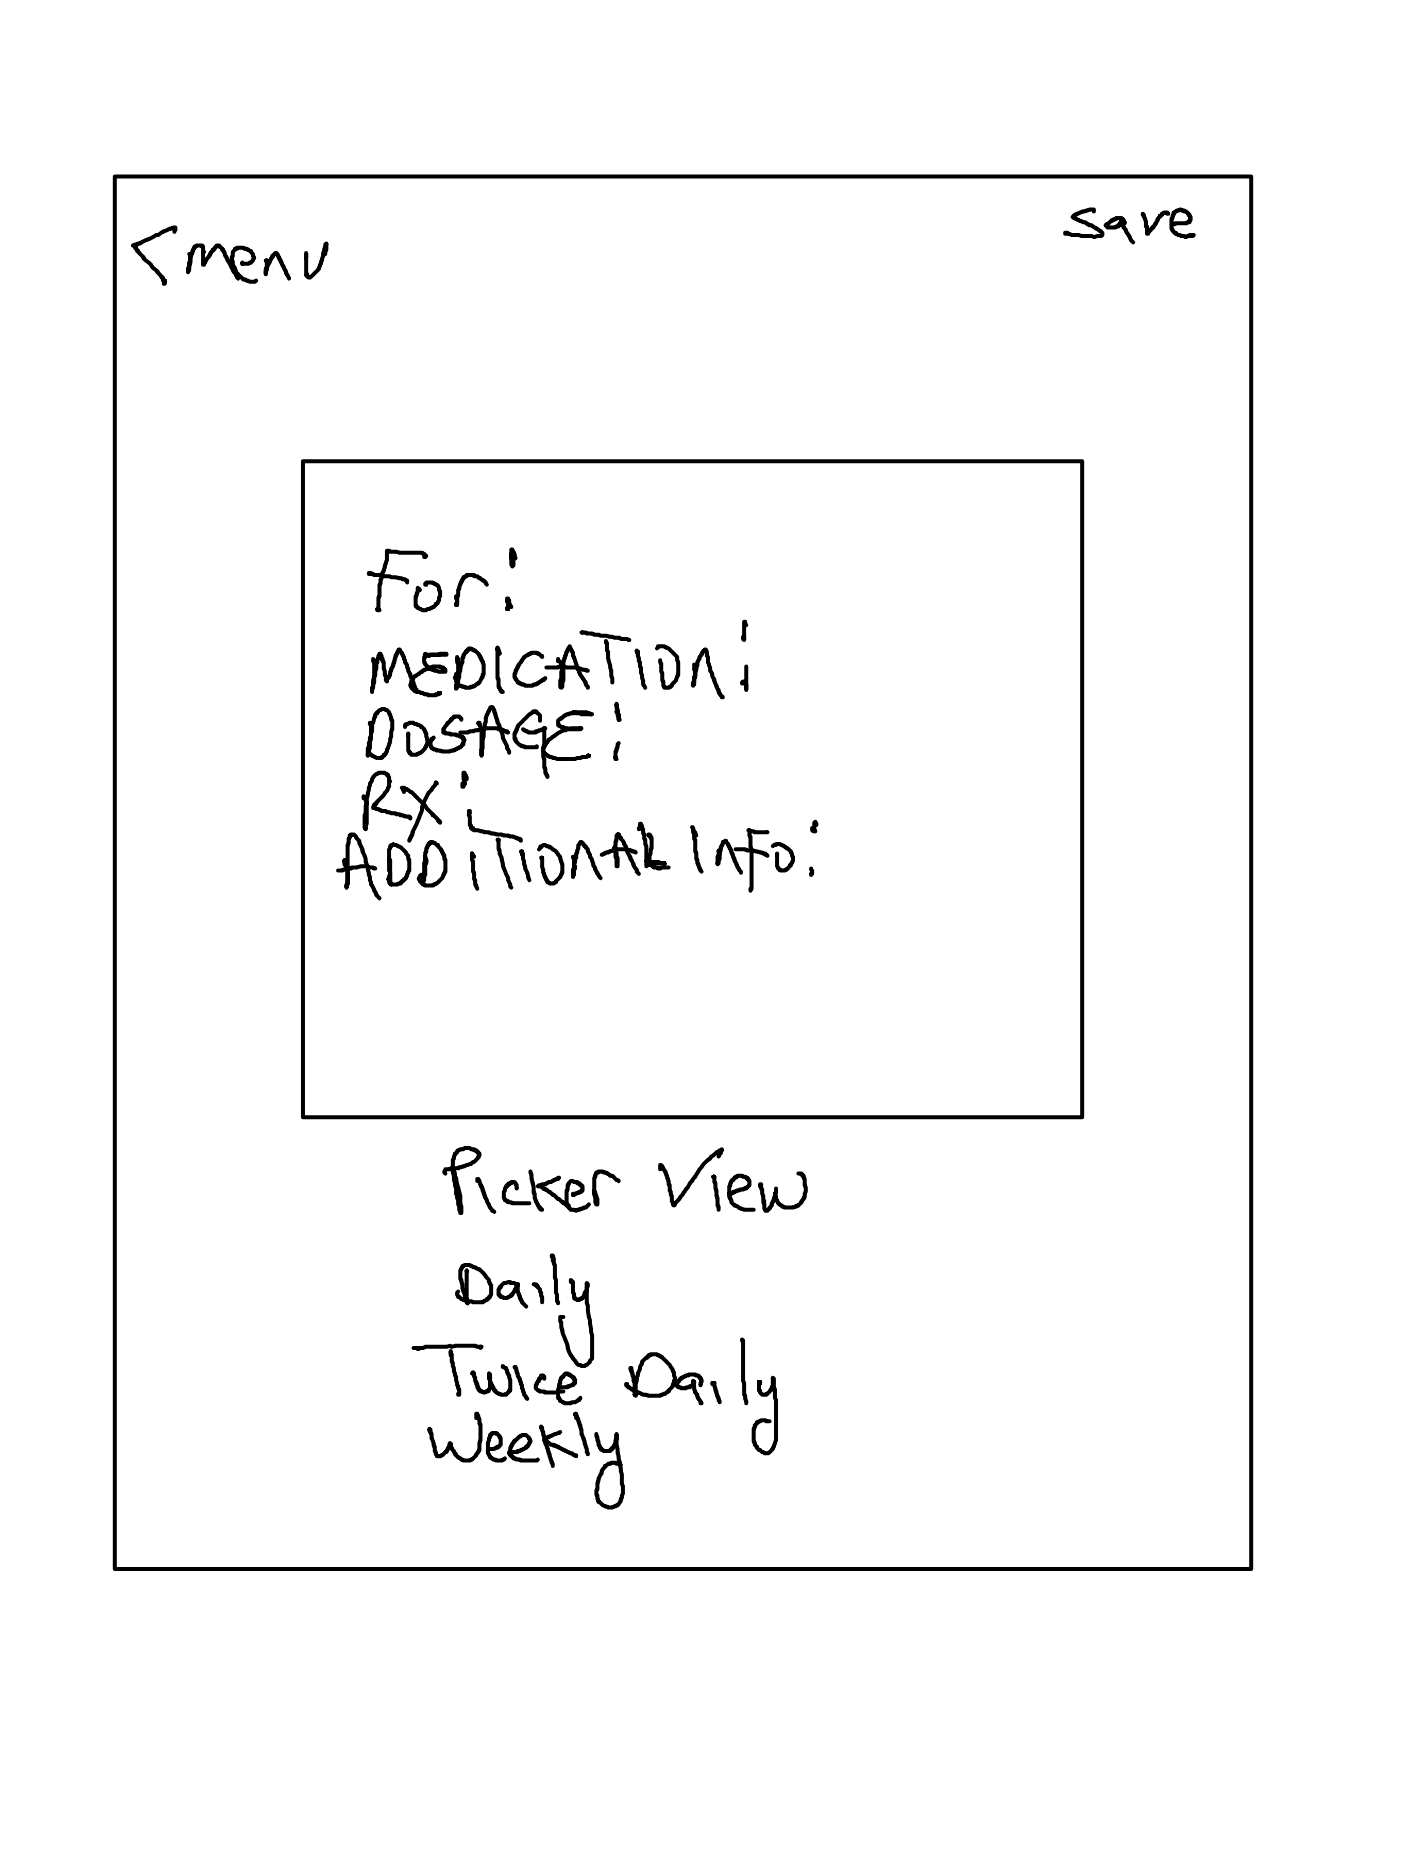 <menu
save
For:
MEDICATION:
DOSAGE:
RX:
ADDITIONAL INFO:
Picker View
Daily
Twice Daily
Weekly